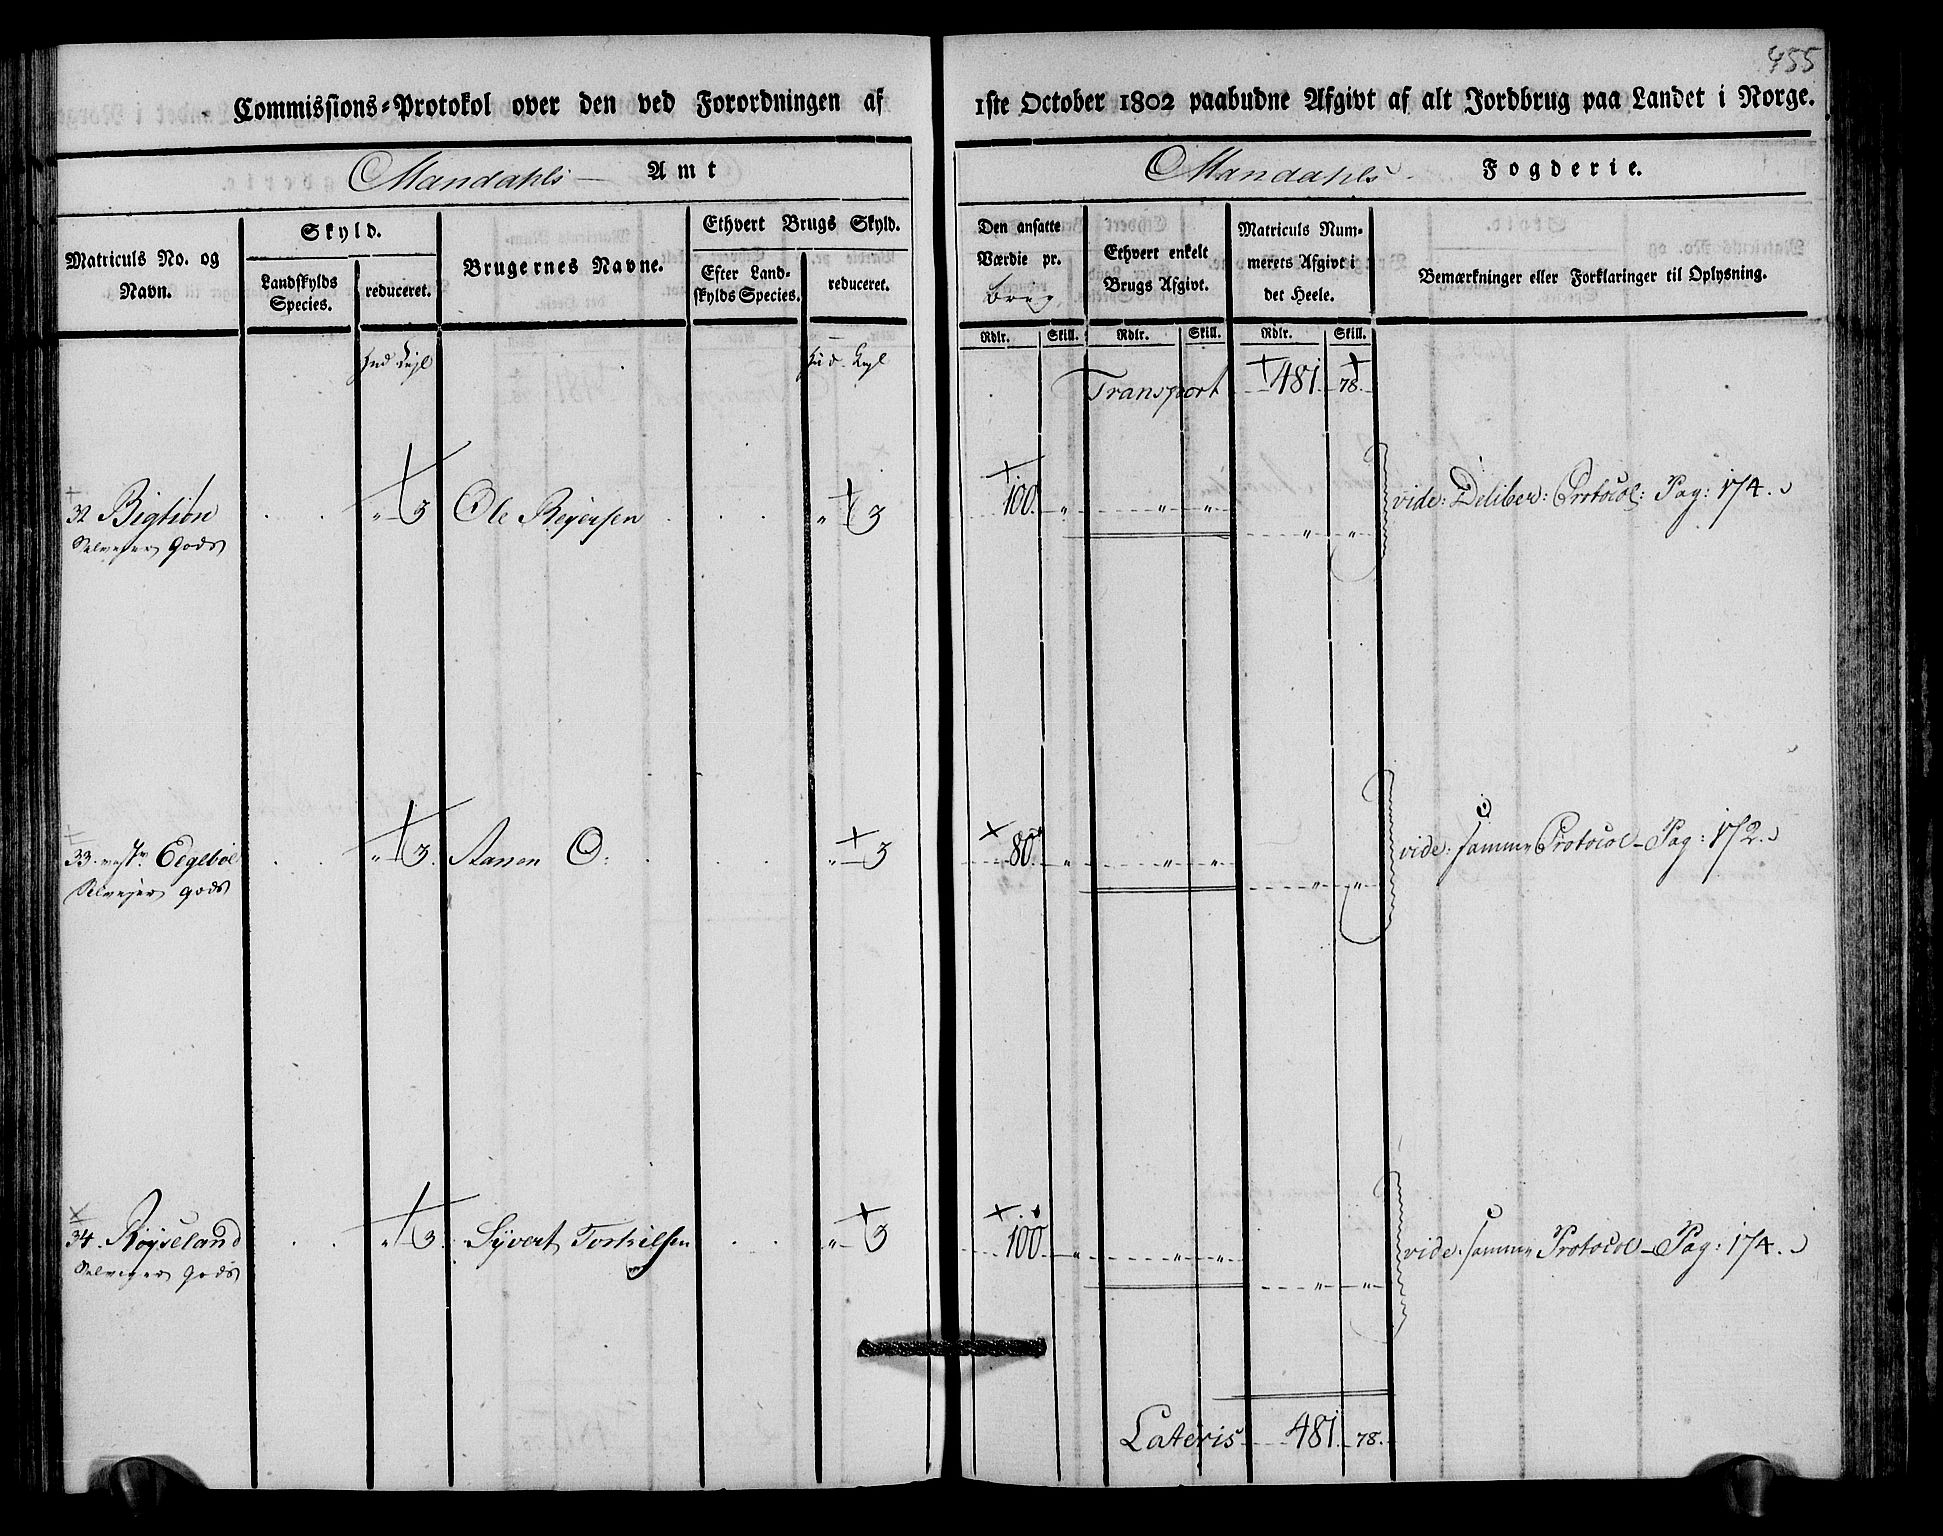 455
Commissions-Protokol over den ved Forordningen af 1ste October 1802 paabudne Afgivt af alt Jordbrug paa Landet i Norge.
Mandahls Amt
Mandahls Fogderie.
Matriculs No. og Navn.
Skyld.
Landskylds Species.
reduceret.
Brugernes Navne.
Ethvert Brugs Skyld.
Efter Landskylds Species.
reduceret.
Den ansatte Værdie pr. brug
Ethvert enkelt Brugs Afgivt.
Matriculs Nummerets Afgivt i det Heele.
Bemærkninger eller Forklaringer til Oplysning.
Rdlr. Skill. Rdlr. Skill. Rdlr. Skill.
Transport 481 78.
32 Bigtiøn " 3 Ole Regersen " 3 100 " " " vide: Deliber: Protocol: Pag: 174.
Selveier Gods " "
33. Eegebøe " 3. Aanen O: " 3 80 " " " vide: samme Protocol - Pag: 172.
Selveier Gods " "
34. Røyseland " 3. Syvert Torkilsen " 3 100 " " " vide: samme Protocol - Pag: 174.
Selveier Gods " "
Lateris 481 78.